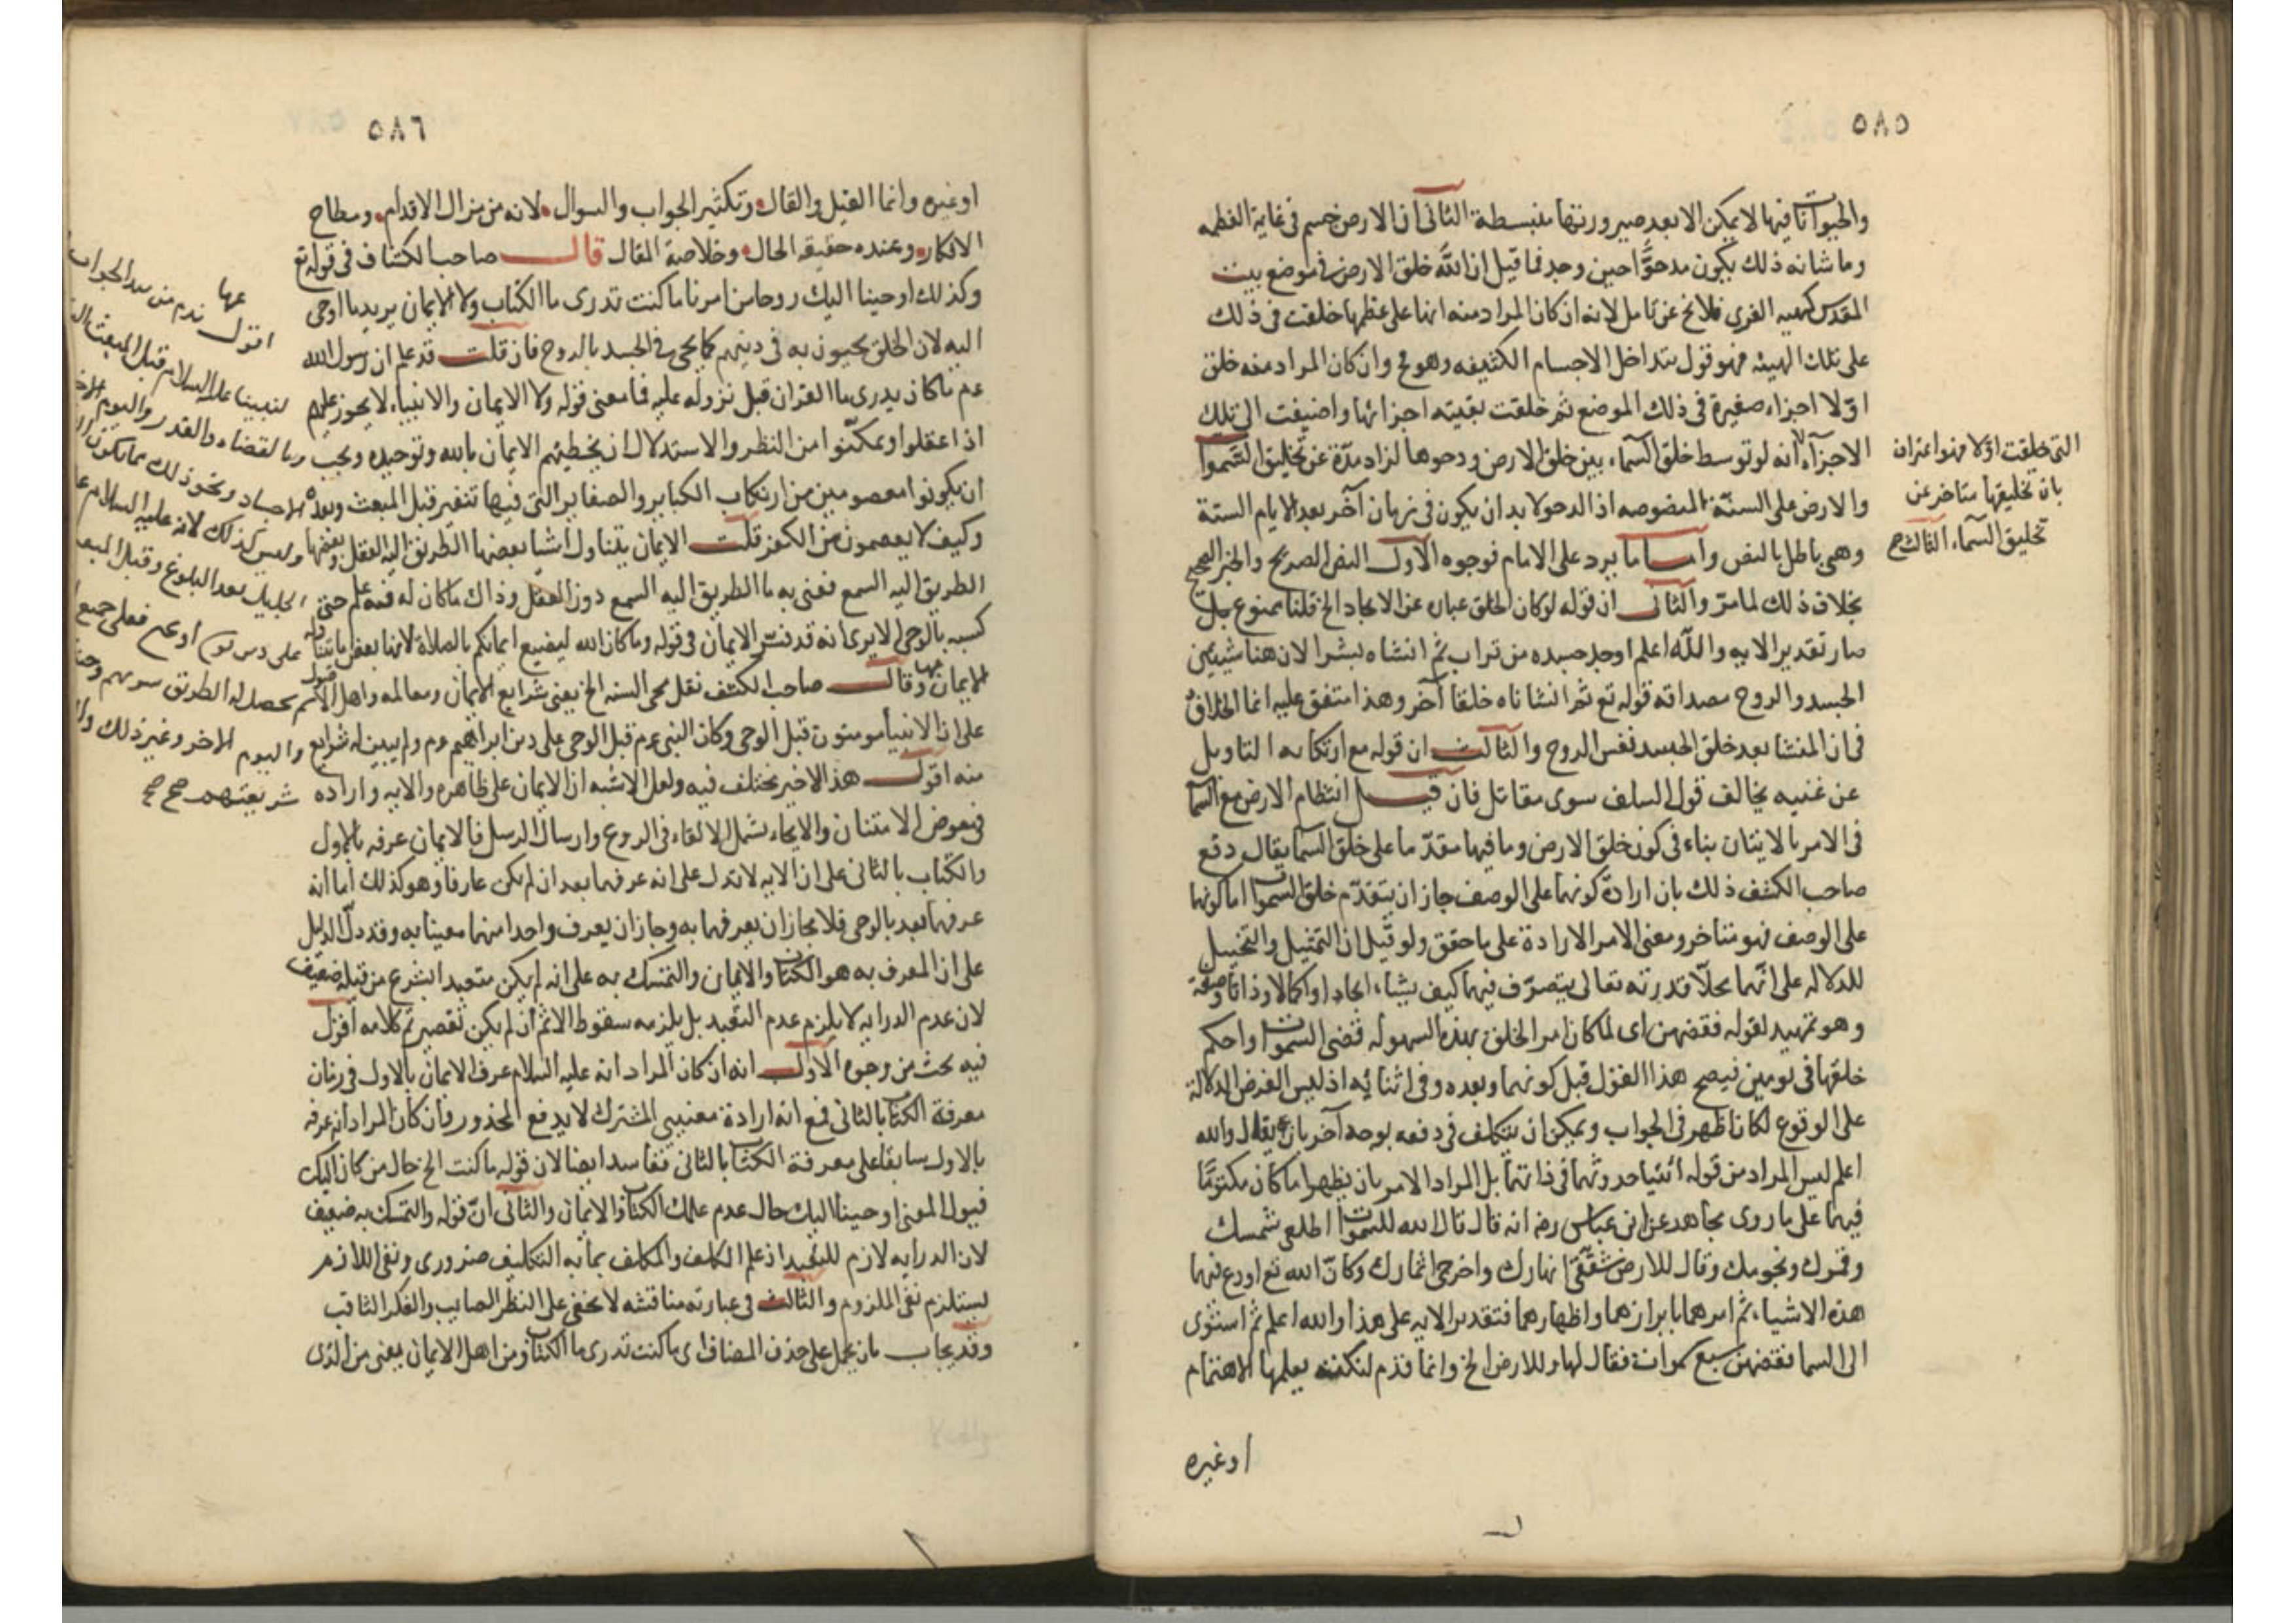 ٥٨٥
والحيوانات فيها لا يمكن الا بعد صيرورتها منبسطة الثانى ان الارض جسم فى غاية العظم
وما شانه ذلك يكون مدحوا حين وجد فما قيل ان الله خلق الارض فى موضع بيت
المقدس كهيه الفهر فلا يخ عن تامل لانه ان كان المراد منه انها على عظمها خلقت فى ذلك
على تلك الهيئه فهو قول بتداخل الاجسام الكثيفه وهو مح وان كان المراد منه خلق
اوّلا اجزاء صغيرة فى ذلك الموضع ثم خلقت بقيته اجزائها واضيفت الى تلك
الاجزآء لانه لو توسط خلق السمآء بين خلق الارض ودحوها لزاد مدّة عن تخليق السموات
والارض على الستة المنصوصه اذ الدحو لا بد ان يكون فى زمان آخر بعد الايام الستة
وهى باطل بالنص واما ما يرد على الامام فوجوه الاول النص الصريح والخبر الصحيح
بخلاف ذلك لما مرّ والثانى ان قوله لو كان الخلق عباره عن الايجاد الخ قلنا ممنوع بل
صار تقدير الايه والله اعلم اوجد جسده من تراب ثم انشاه بشرا لان هنا شيئين
الجسد والروح مصداقه قوله تع ثم انشاناه خلقا آخر وهذا متفق عليه انما الخلاف
فى ان المنشا بعد خلق الجسد نفس الروح والثالث ان قوله مع ارتكابه التاويل
عن غنيه يخالف قول السلف سوى مقاتل فان قيل انتظام الارض مع السما
فى الامر بالاتيان بناء فى كون خلق الارض وما فيها مقدّما على خلق السما يقال دفع
صاحب الكشف ذلك بان ارادة كونهما على الوصف جاز ان يتقدّم خلق السموات اما كونها
على الوصف فهو متاخر ومعنى الامر الارادة على ما حقق ولو قيل ان التمثيل والتخييل
للدلاله على انّهما محلّا قدرته تعالى يتصرّف فيهما كيف يشاء ايجادا واكمالا وذاتا وصفة
وهو تمهيد لقوله فقضهن اى لما كان امر الخلق بهذه السهوله قضى السموات واحكم
خلقها فى يومين فيصح هذا القول قبل كونهما وبعده وفى اثنائه اذ ليس الغرض الدلالة
على الوقوع لكان اظهر فى الجواب ويمكن ان يتكلف فى دفعه بوجه آخر بان يقال والله
اعلم ليس المراد من قوله ائتيا حدوثهما فى ذاتهما بل المراد الامر بان يظهرا ما كان مكتومًا
فيهما على ما روى مجاهد عن ابن عباس رضه انه قال قال الله للسموات اطلعى شمسك
وقمرك ونجومك وقال للارض شققى انهارك واخرجى اثمارك وكانّ الله تع اودع فيهما
هذه الاشياء ثم امرهما بابرازهما واظهارهما فتقدير الايه على هذا والله اعلم ثم استوى
الى السما فقضهن سبع سموات فقال لها وللارض الخ وانما قدم لنكته يعلمها الاهتمام
اوغيره
التى خلقت اوّلا فهو اعتراف
بان تخليقها متاخر عن
تخليق السمآء الثالث صح
٥٨٦
اوغيره وانما القيل والقال وتكثير الجواب والسوال لانه من مزال الاقدام ومطاح
الافكار وعنده حقيقه الحال وخلاصة المقال قال صاحب الكشاف فى قوله تع
وكذلك اوحينا اليك روحا من امرنا ما كنت تدرى ما الكتاب ولا الايمان يريد ما اوحى
اليه لان الخلق يحيون به فى دينهم كما يحيى الجسد بالروح فان قلت قد علم ان رسول الله
عم ما كان يدرى ما القران قبل نزوله عليه فما معنى قوله ولا الايمان والانبياء لا يجوز عليهم
اذا عقلوا وتمكّنوا من النظر والاستدلال ان يخطيهم الايمان بالله وتوحيده ويجب
ان يكونوا معصومين من ارتكاب الكباير والصغاير التى فيها تنفير قبل المبعث وبعده
وكيف لا يعصمون من الكفر قلت الايمان يتناول اشيا بعضها الطريق اليه العقل وبعضها
الطريق اليه السمع فعنى به ما الطريق اليه السمع دون العقل وذاك ما كان له فيه علم حتى
كسبه بالوحى الا يرى انه قد فسّر الايمان فى قوله وما كان الله ليضيع ايمانكم بالصلاة لانها بعض ما يتناوله
الايمان وقال صاحب الكشف نقل محى السنه الخ يعنى شرايع الايمان ومعالمه واهل الاصول
على ان الانبيا مومنون قبل الوحى وكان النبى عم قبل الوحى على دين ابراهيم عم ولم يبين له شرايع
منه اقول هذا الاخير مختلف فيه ولعل الاشبه ان الايمان على ظاهره والايه واراده
فى معرض الامتنان والايحاء يشمل الالقاء فى الروع وارسال الرسل فالايمان عرفه بالاول
والكتاب بالثانى على ان الايه لا تدل على انه عرفهما بعد ان لم يكن عارفا وهو كذلك اما انه
عرفهما بعد بالوحى فلا فجاز ان يعرفهما به وجاز ان يعرف واحدا منهما معينا به وقد دلّ الدليل
على ان المعرف به هو الكتاب والايمان والتمسك به على انه لم يكن متعبد الشرع من قبله ضعيف
لان عدم الدرايه لا يلزم عدم التعبد بل يلزمه سقوط الاثم ان لم يكن تقصير تم كلامه اقول
فيه بحث من وجوه الاول انه ان كان المراد انه عليه السلام عرف الايمان بالاول فى زمان
معرفة الكتاب بالثانى فمع انه ارادة معنيى المشترك لا يدفع المحذور وان كان المراد انه عرفه
بالاول سابقا على معرفة الكتاب بالثانى ففاسد ايضا لان قوله ما كنت الخ حال من كاف اليك
فيول المعنى اوحينا اليك حال عدم علمك الكتاب والايمان والثانى انّ قوله والتمسك به ضعيف
لان الدرايه لازم للتعبد اذ علم المكلف والمكلف بما به التكليف ضرورى ونفى اللازم
يستلزم نفى الملزوم والثالث فى عبارته مناقشه لا تخفى على النظر الصايب والفكر الثاقب
وقد يجاب بان يحمل على حذف المضاف اى ما كنت تدرى ما الكتاب ومن اهل الايمان يعنى من الذى
عنها
اقول
لنبينا عليه السلام قبل المبعث
وبالقضاء والقدر واليوم
الاجساد ونحو ذلك مما يكون
وليس كذلك لانه عليه السلام
بعد البلوغ وقبل
على دين نوح او غيره فعلى جميع
يحصل له الطريق
واليوم الاخر وغير ذلك
شريعتهم صح صح